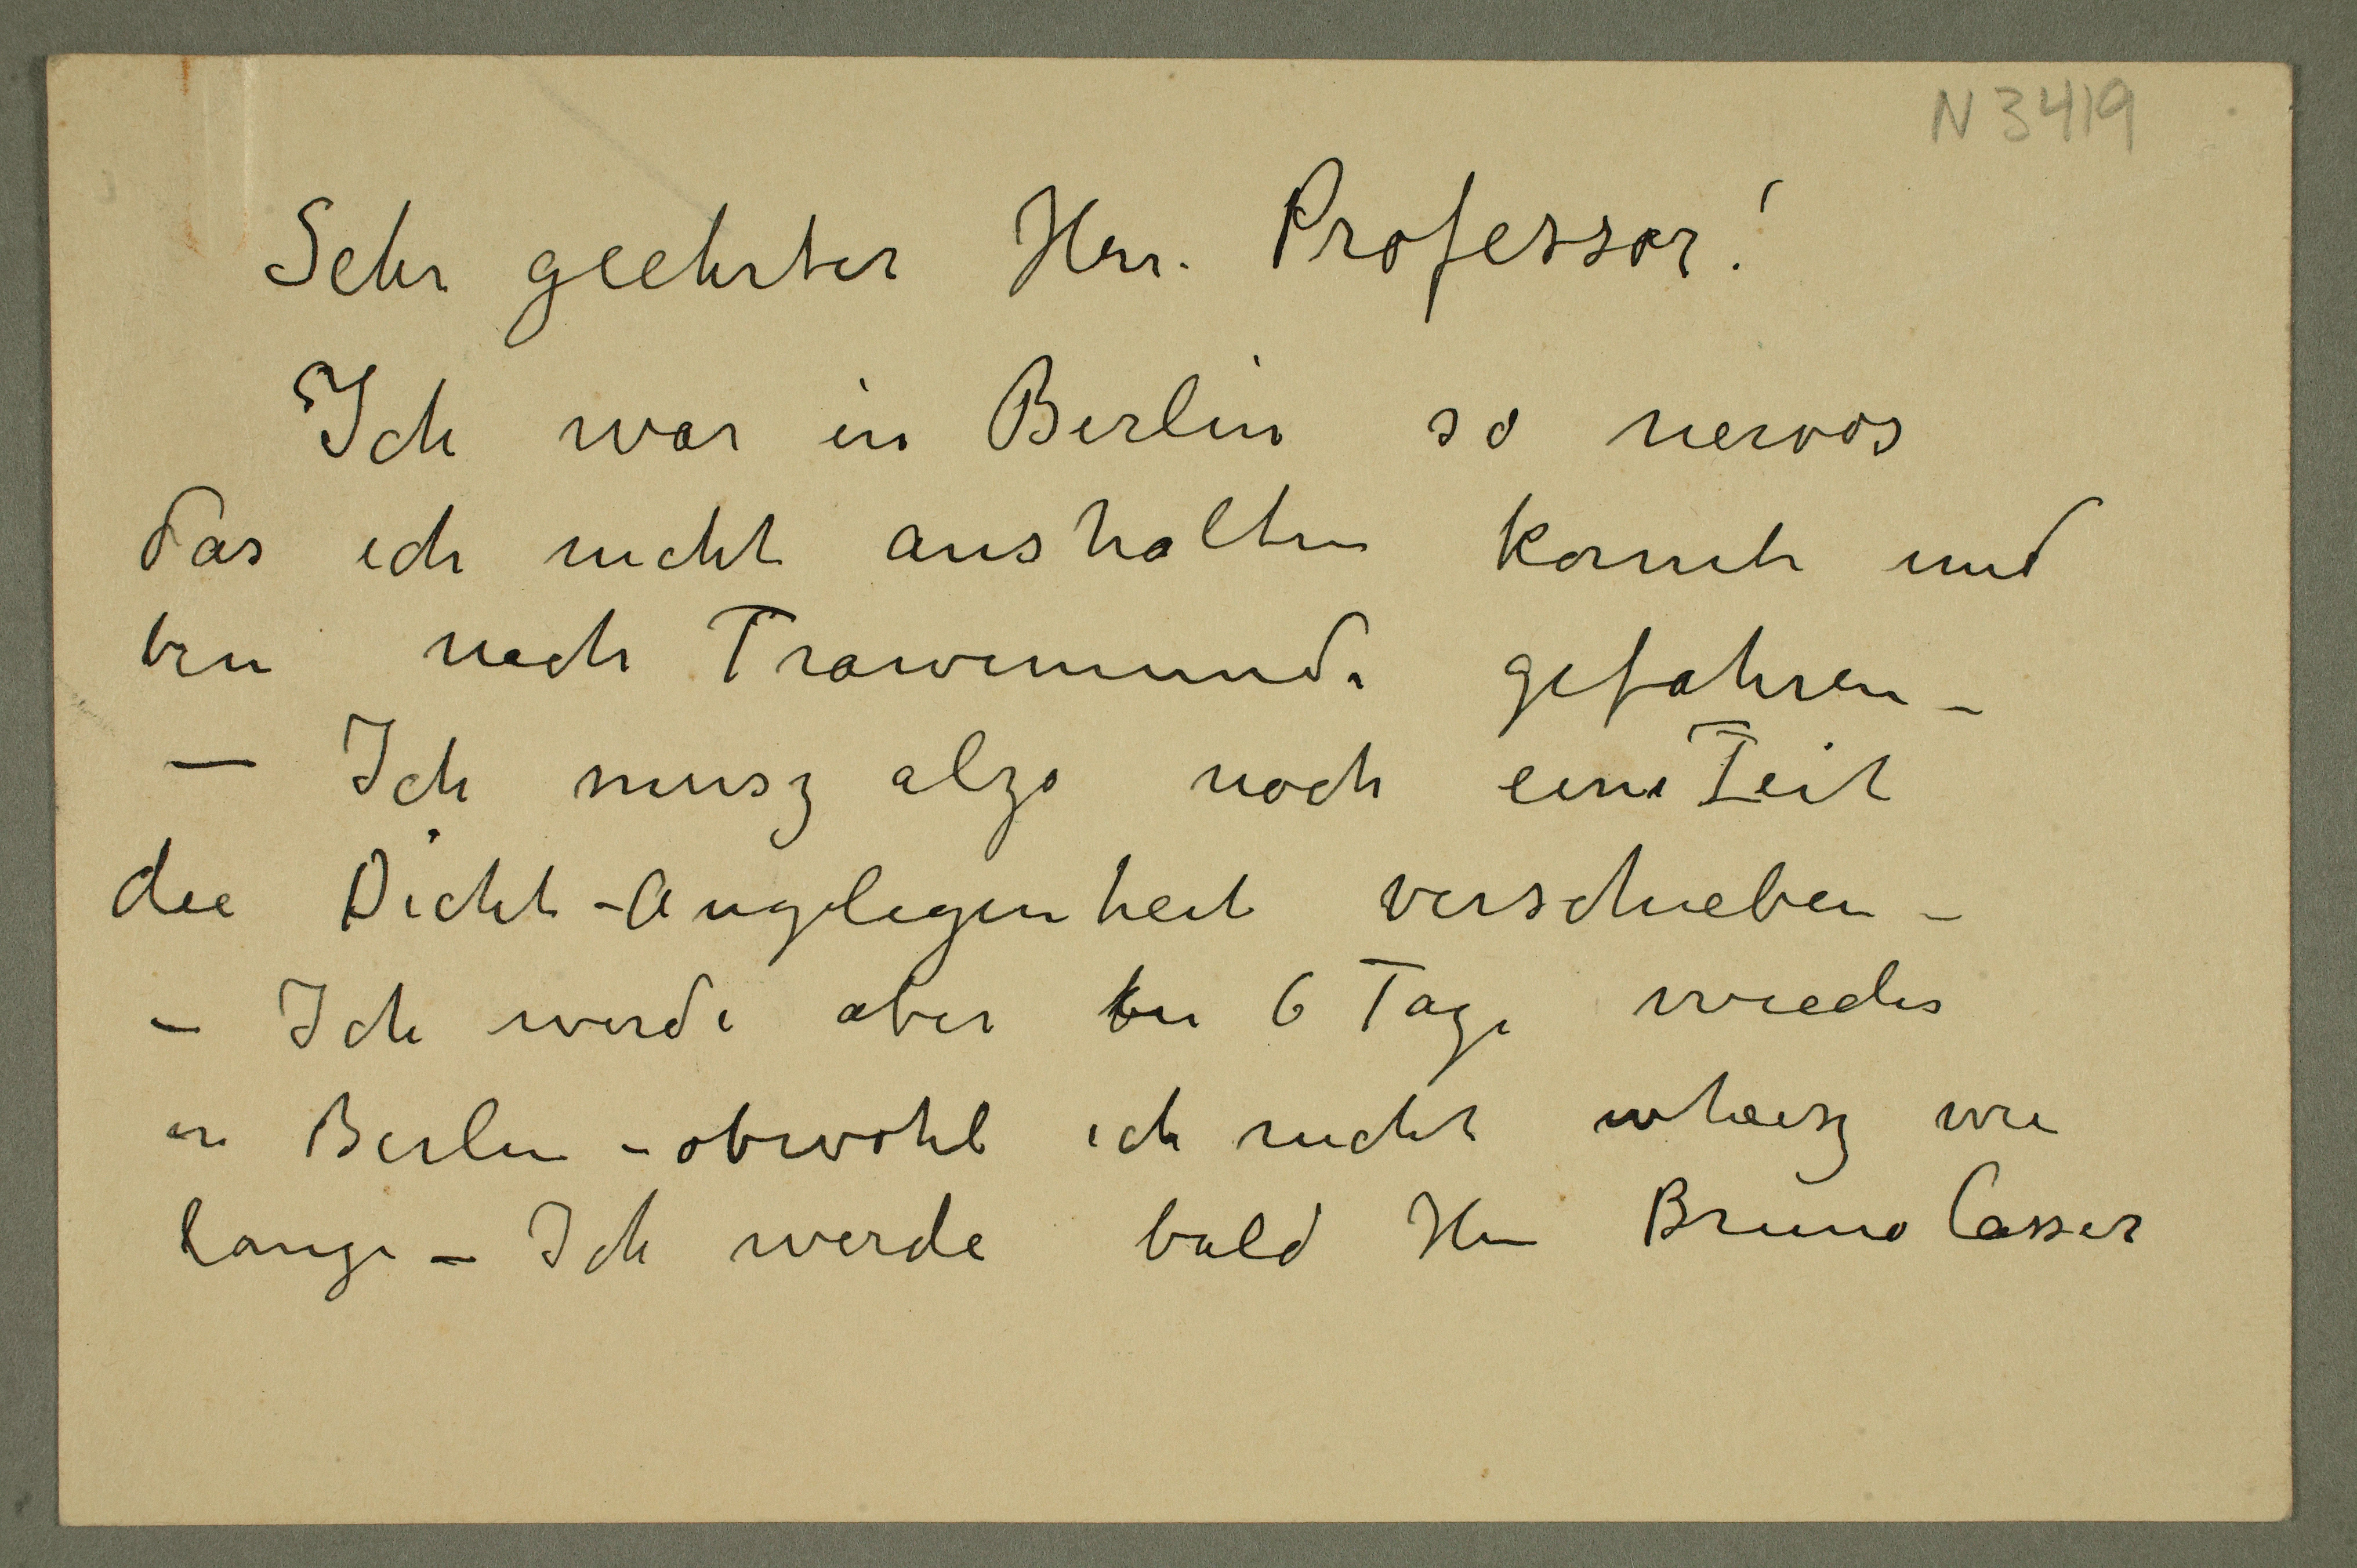 N 3419
Sehr geehrter Herr. Professor!
Ich war in Berlin so nervos
das ich nicht aushalten konnte und
bin nach Trawemunde gefahren –
– Ich musz alzo noch eine Zeit
die Dicht-Angelegenheit verschieben –
– Ich werde aber in 6 Tage wieder
in Berlin – obwohl ich nicht wheisz wie
lange – Ich werde bald Hrn Bruno Casser